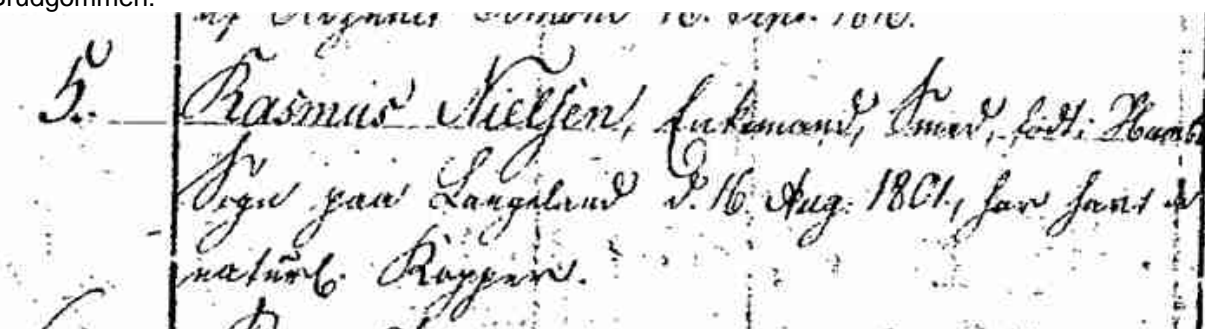 Brudgommen.
af 18. Sept. 1818.
5. Rasmus Nielsen, Enkemand, Smed, født i
Sogn paa Langeland d. 16 Aug. 1801, har havt de
naturl. Kopper.